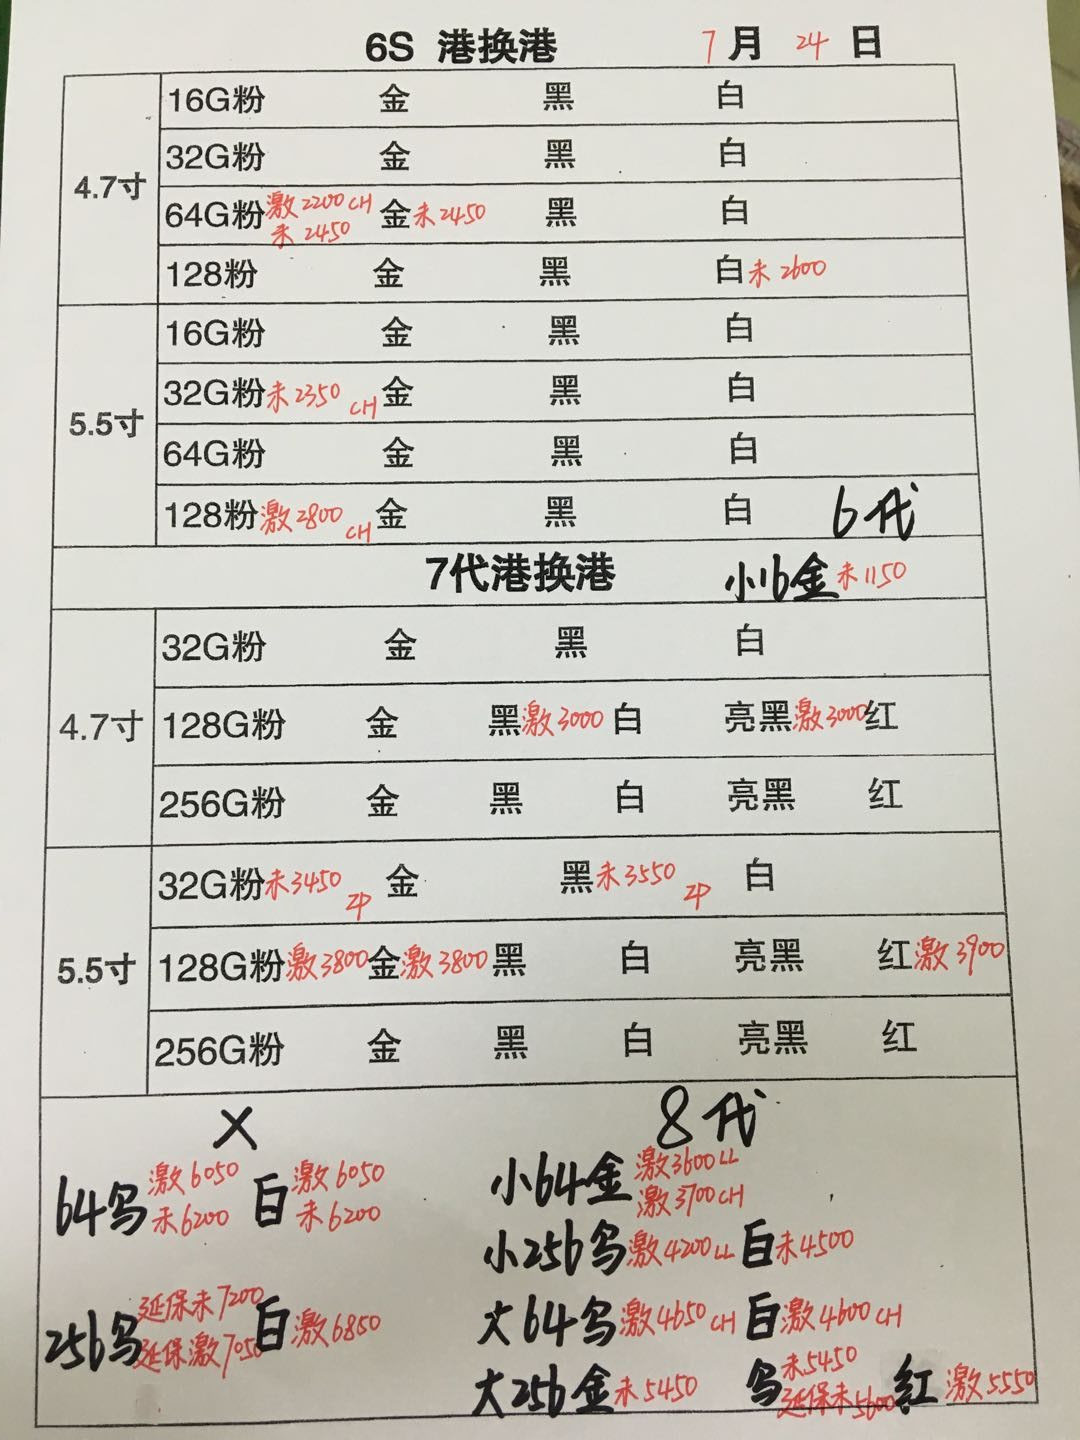 6S 港换港 7月24日
4.7寸
16G粉 金 黑 白
32G粉 金 黑 白
64G粉 激2200CH 未2450 金 未2450 黑 白
128粉 金 黑 白 未2600
5.5寸
16G粉 金 黑 白
32G粉 未2350 CH 金 黑 白
64G粉 金 黑 白
128粉 激2800 CH 金 黑 白
6代
7代港换港
小16金 未1150
4.7寸
32G粉 金 黑 白
128G粉 金 黑 激3000 白 亮黑 激3000 红
256G粉 金 黑 白 亮黑 红
5.5寸
32G粉 未3450 ZP 金 黑 未3550 ZP 白
128G粉 激3800 金 激3800 黑 白 亮黑 红 激3900
256G粉 金 黑 白 亮黑 红
X
64乌 激6050 未6200 白 激6050 未6200
256乌 延保未7200 延保激7050 白 激6850
8代
小64金 激3600LL 激3700CH
小256乌 激4200LL 白 未4500
大64乌 激4650CH 白 激4600CH
大256金 未5450 乌 未5450 延保未5600 红 激5550